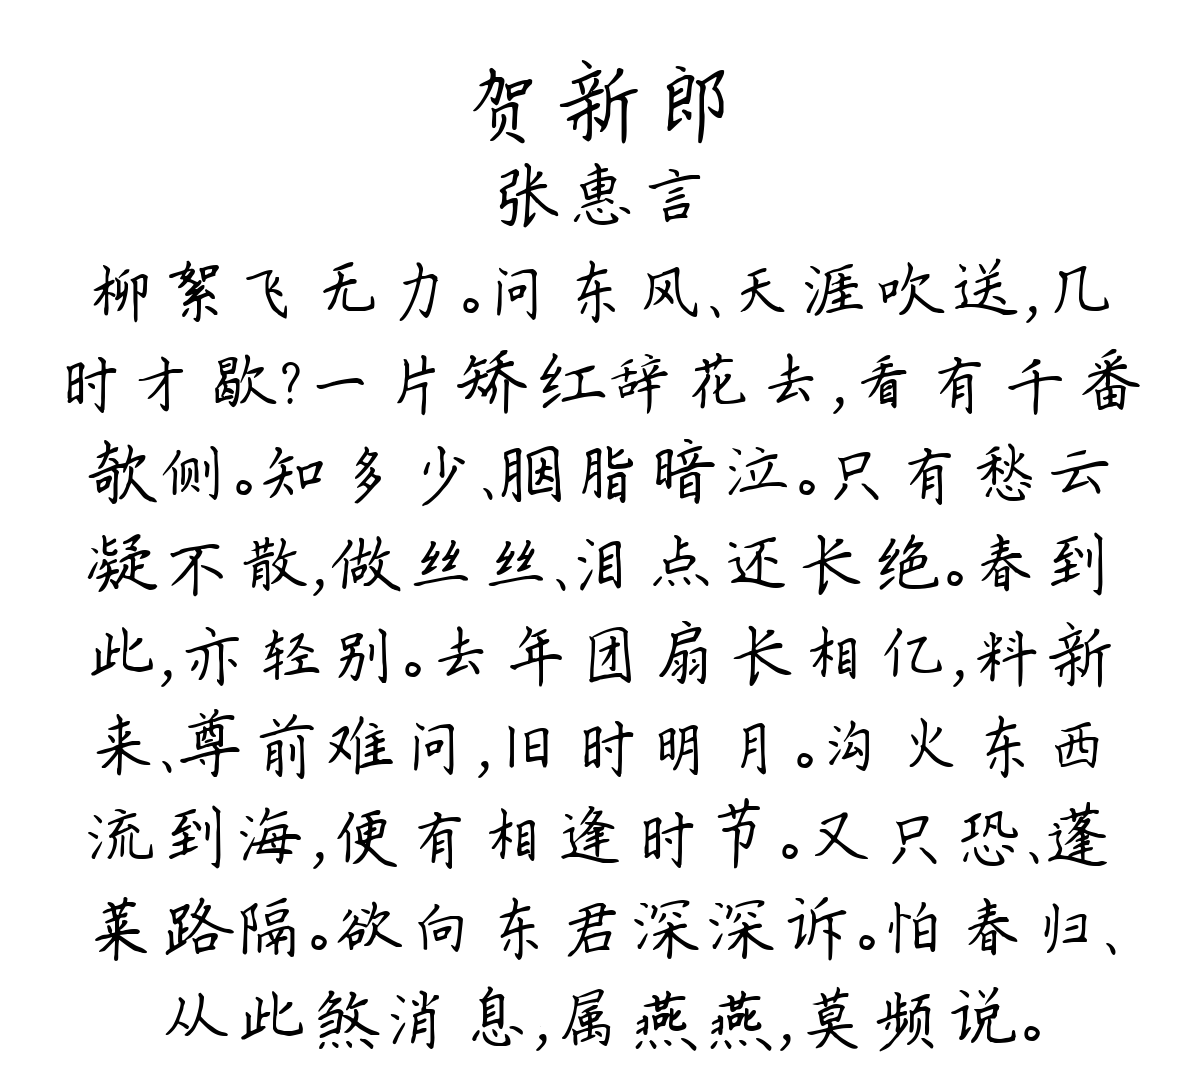 贺新郎
张惠言
柳絮飞无力。问东风、天涯吹送,几
时才歇?一片矫红辞花去,看有千番
欹侧。知多少、胭脂暗泣。只有愁云
凝不散,做丝丝、泪点还长绝。春到
此,亦轻别。去年团扇长相亿,料新
来、尊前难问,旧时明月。沟火东西
流到海,便有相逢时节。又只恐、蓬
莱路隔。欲向东君深深诉。怕春归、
从此煞消息,属燕燕,莫频说。